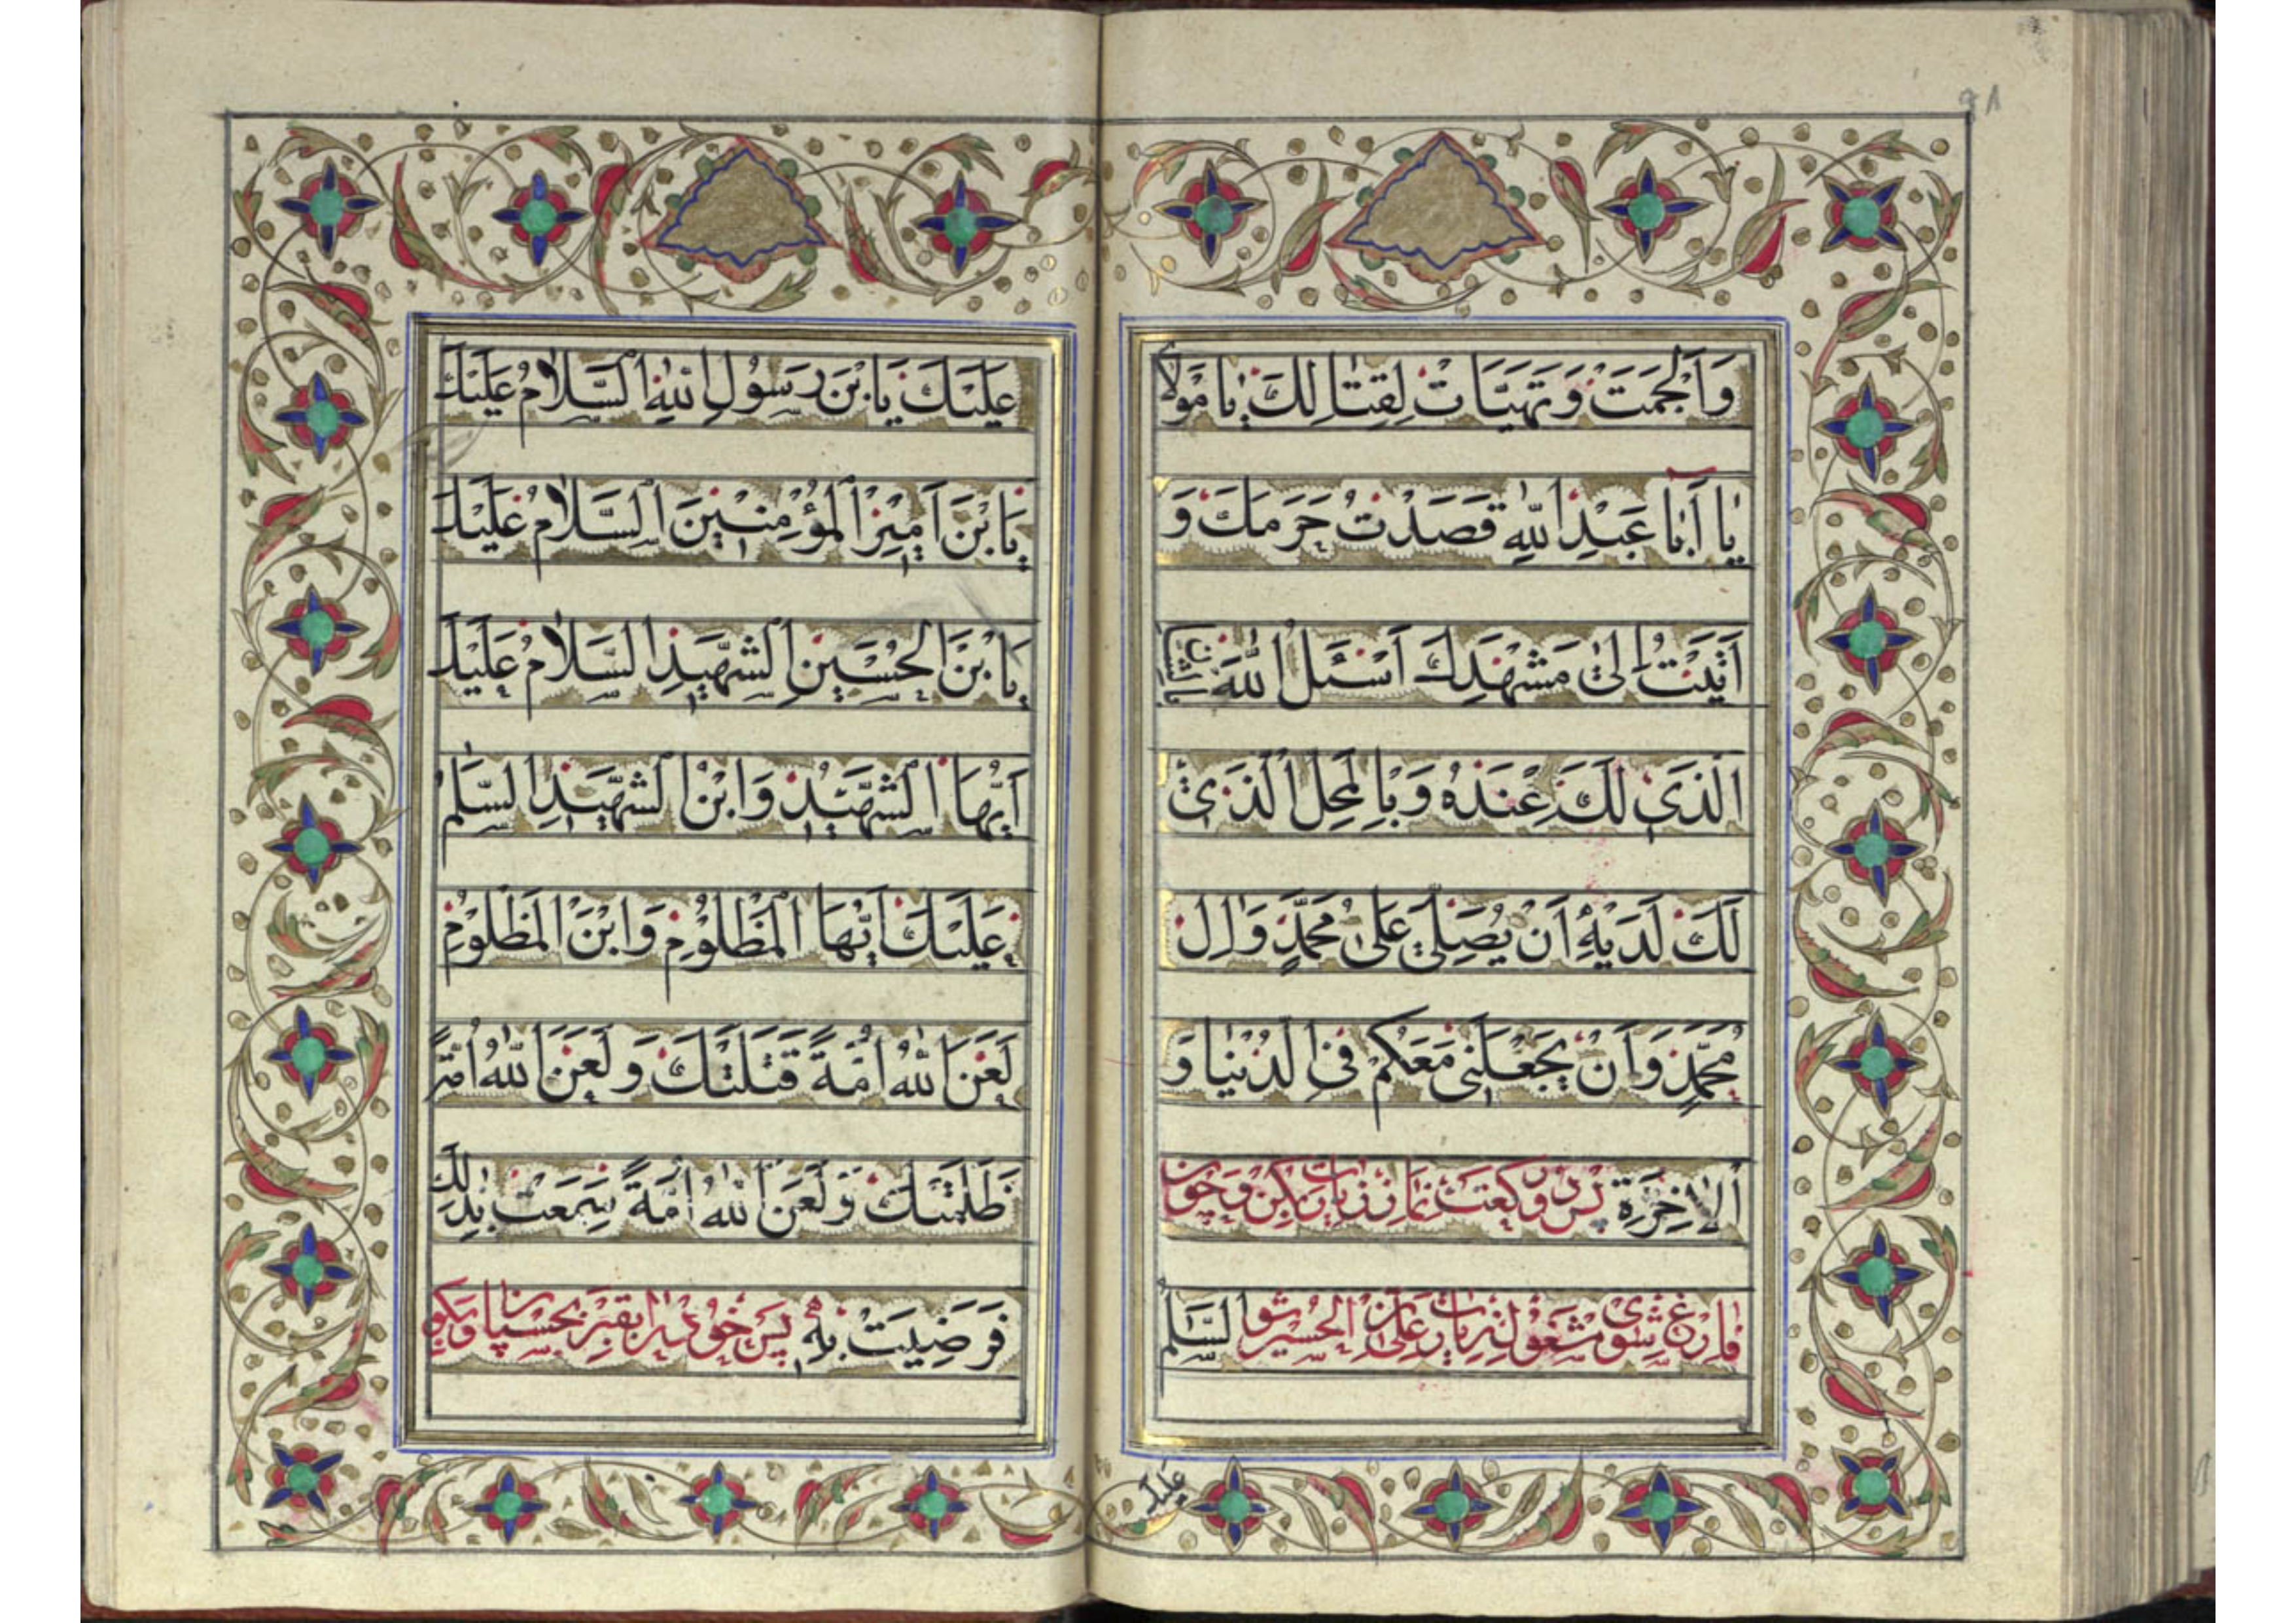 وَاَلْجَمَتْ وَتَهَيَّاَتْ لِقِتٰالِكَ يٰا مَوْلاٰ
يٰا اَبٰا عَبْدِ اللهِ قَصَدْتُ حَرَمَكَ وَ
اَتَيْتُ اِلىٰ مَشْهَدِكَ اَسْئَلُ اللهَ بِالشَّأنِ
الَّذى لَكَ عِنْدَهُ وَبِالْمَحَلِّ الَّذى
لَكَ لَدَيْهِ اَنْ يُصَلِّىَ عَلىٰ مُحَمَّدٍ وَاٰلِ
مُحَمَّدٍ وَاَنْ يَجْعَلَنى مَعَكُمْ فِى الدُّنْيٰا وَ
الاٰخِرَةِ پس دو رکعت نماز زیارت بکن و چون
فارغ شوی مشغول زیارت علی بن الحسین شو السَّلٰمُ
عليك
عَلَيْكَ يَابْنَ رَسُولِ اللهِ السَّلاٰمُ عَلَيْكَ
يَابْنَ اَميرِ الْمُؤْمِنينَ السَّلاٰمُ عَلَيْكَ
يَابْنَ الْحُسَيْنِ الشَّهيدِ السَّلاٰمُ عَلَيْكَ
اَيُّهَا الشَّهيدُ وَابْنُ الشَّهيدِ السَّلٰمُ
عَلَيْكَ اَيُّهَا الْمَظْلُومُ وَابْنُ الْمَظْلُومِ
لَعَنَ اللهُ اُمَّةً قَتَلَتْكَ وَلَعَنَ اللهُ اُمَّةً
ظَلَمَتْكَ وَلَعَنَ اللهُ اُمَّةً سَمِعَتْ بِذٰلِكَ
فَرَضِيَتْ بِهِ پس خود را بقبر بچسپان و بگو